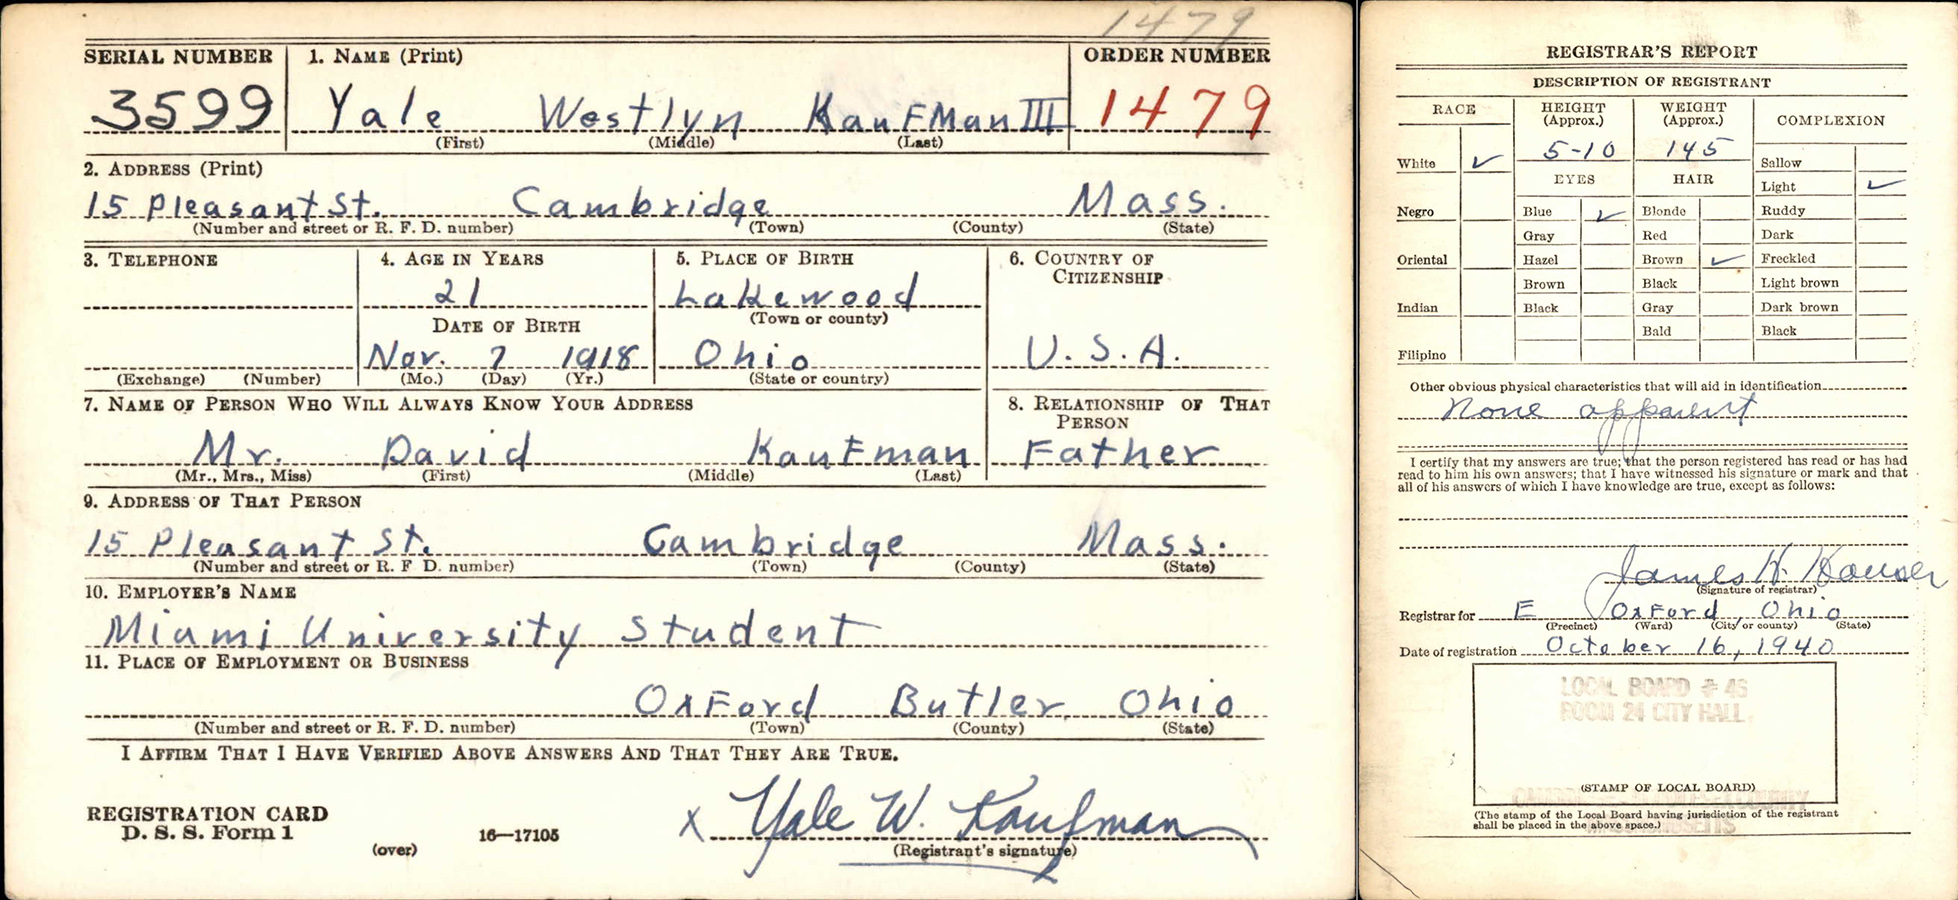 1479
SERIAL NUMBER 1. NAME (Print) ORDER NUMBER
3599 Yale Westlyn Kaufman III 1479
(First) (Middle) (Last)
2. ADDRESS (Print)
15 Pleasant St. Cambridge Mass.
(Number and street or R. F. D. number) (Town) (County) (State)
3. TELEPHONE 4. AGE IN YEARS 5. PLACE OF BIRTH 6. COUNTRY OF
CITIZENSHIP
21 Lakewood
(Town or county)
DATE OF BIRTH
Nov. 7 1918 Ohio U.S.A.
(Exchange) (Number) (Mo.) (Day) (Yr.) (State or country)
7. NAME OF PERSON WHO WILL ALWAYS KNOW YOUR ADDRESS 8. RELATIONSHIP OF THAT
PERSON
Mr. David Kaufman Father
(Mr., Mrs., Miss) (First) (Middle) (Last)
9. ADDRESS OF THAT PERSON
15 Pleasant St. Cambridge Mass.
(Number and street or R. F. D. number) (Town) (County) (State)
10. EMPLOYER'S NAME
Miami University Student
11. PLACE OF EMPLOYMENT OR BUSINESS
Oxford Butler Ohio
(Number and street or R. F. D. number) (Town) (County) (State)
I AFFIRM THAT I HAVE VERIFIED ABOVE ANSWERS AND THAT THEY ARE TRUE.
REGISTRATION CARD
D. S. S. Form 1 16—17105 x Yale W. Kaufman
(over) (Registrant's signature)
REGISTRAR'S REPORT
DESCRIPTION OF REGISTRANT
RACE HEIGHT (Approx.) WEIGHT (Approx.) COMPLEXION
White ✓ 5-10 145 Sallow
EYES HAIR Light ✓
Negro Blue ✓ Blonde Ruddy
Gray Red Dark
Oriental Hazel Brown ✓ Freckled
Brown Black Light brown
Indian Black Gray Dark brown
Bald Black
Filipino
Other obvious physical characteristics that will aid in identification
None apparent
I certify that my answers are true; that the person registered has read or has had
read to him his own answers; that I have witnessed his signature or mark and that
all of his answers of which I have knowledge are true, except as follows:
James H.
(Signature of registrar)
Registrar for E Oxford, Ohio
(Precinct) (Ward) (City or county) (State)
Date of registration October 16, 1940
LOCAL BOARD # 46
ROOM 24 CITY HALL
(STAMP OF LOCAL BOARD)
(The stamp of the Local Board having jurisdiction of the registrant
shall be placed in the above space.)